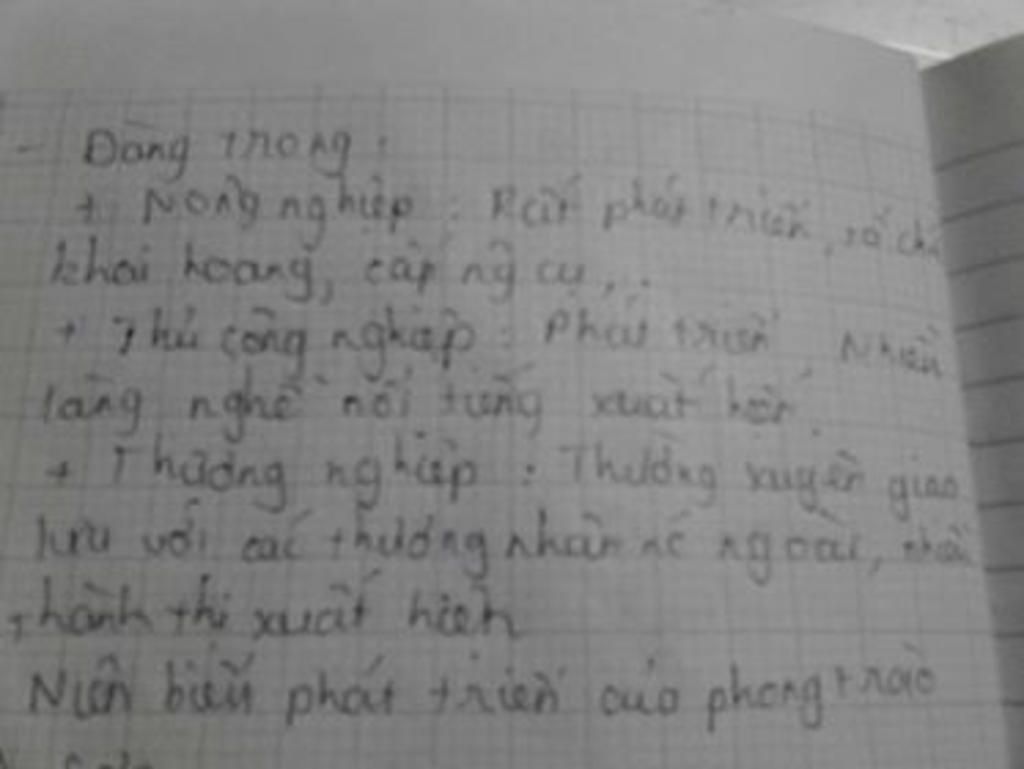 - Đàng trong :
+ Nông nghiệp : Rất phát triển, tổ chức
khai hoang, cấp ng cụ,..
+ Thủ công nghiệp : Phát triển. Nhiều
làng nghề nổi tiếng xuất hiện.
+ Thương nghiệp : Thường xuyên giao
lưu với các thương nhân nc ngoài, nhiều
thành thị xuất hiện
Niên biểu phát triển của phong trào